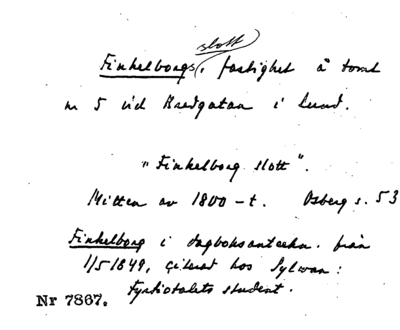 slott
Finkelborgs, fastighet å tomt
nr 5 vid Bredgatan i Lund.
"Finkelborg slott".
Mitten av 1800-t. Osberg s. 53
Finkelborg i dagboksanteckn. från
1/5 1849, citerat hos Sylwan:
Fyrtiotalets student.
Nr 7867.